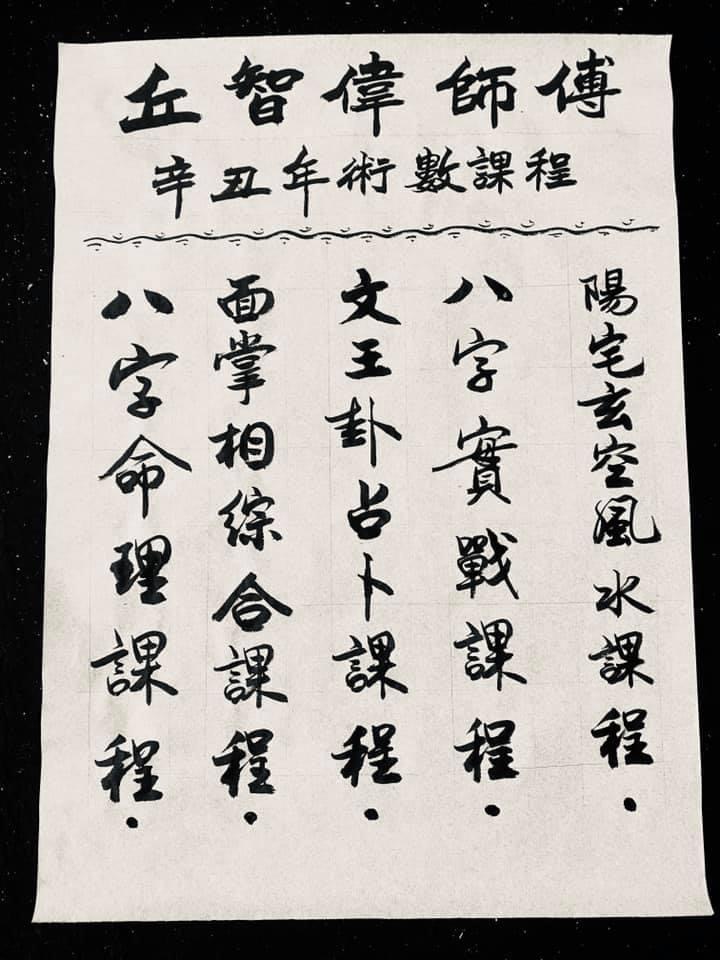 丘智偉師傅
辛丑年術數課程
陽宅玄空風水課程.
八字實戰課程.
文王卦占卜課程.
面掌相綜合課程.
八字命理課程.